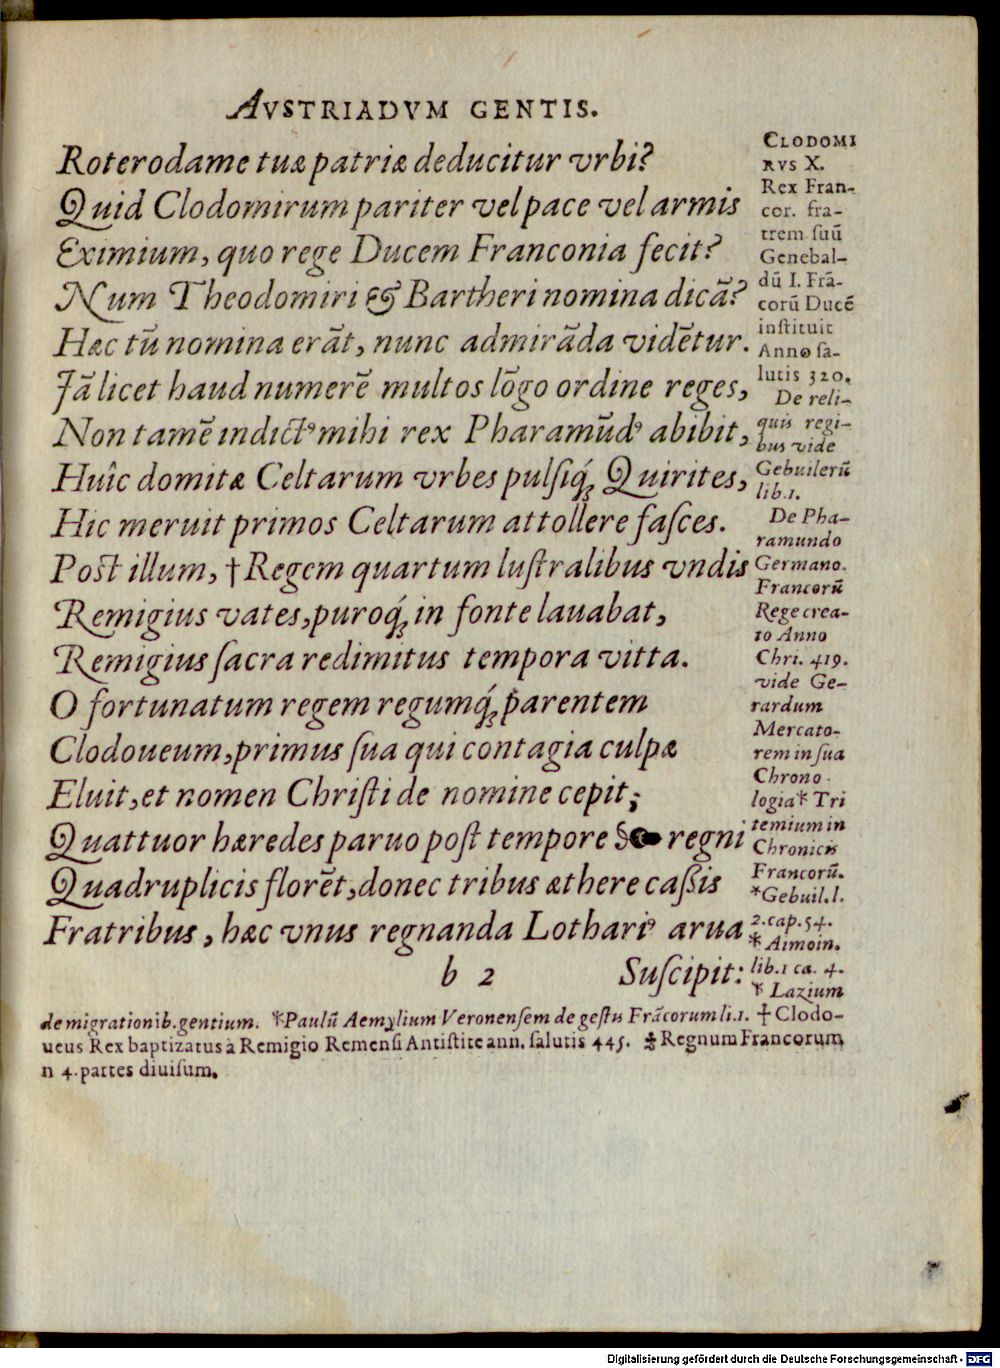 AVSTRIADVM GENTIS.
Roterodame tuæ patriæ deducitur vrbi?
Quid Clodomirum pariter vel pace vel armis
Eximium, quo rege Ducem Franconia fecit?
Num Theodomiri & Bartheri nomina dicã?
Hæc tũ nomina erãt, nunc admirãda vidẽtur.
Jã licet haud numerẽ multos lõgo ordine reges,
Non tamẽ indictꝰ mihi rex Pharamũdꝰ abibit,
Huîc domitæ Celtarum vrbes pulſiq́; Quirites,
Hic meruit primos Celtarum attollere faſces.
Poſt illum, †Regem quartum luſtralibus vndis
Remigius vates, puroq́; in fonte lauabat,
Remigius ſacra redimitus tempora vitta.
O fortunatum regem regumq́; parentem
Clodoueum, primus ſua qui contagia culpæ
Eluit, et nomen Chriſti de nomine cepit;
Quattuor hæredes paruo poſt tempore regni
Quadruplicis florẽt, donec tribus æthere caſsis
Fratribus, hæc vnus regnanda Lothariꝰ arua
b 2 Suſcipit:
CLODOMI
RVS X.
Rex Fran-
cor. fra-
trem ſuũ
Genebal-
dũ I. Frã-
corũ Ducẽ
inſtituit
Anno ſa-
lutis 320.
De reli-
quis regi-
bus vide
Gebuilerũ
lib.1.
De Pha-
ramundo
Germano.
Francorũ
Rege crea-
to Anno
Chri. 419.
vide Ge-
rardum
Mercato-
rem in ſua
Chrono
logia* Tri
temium in
Chronicis
Francorũ.
*Gebuil. l.
2.cap.54.
* Aimoin.
lib.1 ca. 4.
* Lazium
de migrationib. gentium. *Paulũ Aemylium Veronenſem de geſtis Frãcorum li.1. †Clodo-
ueus Rex baptizatus à Remigio Remenſi Antiſtite ann. ſalutis 445. ‡Regnum Francorum
n 4. partes diuiſum.
Digitalisierung gefördert durch die Deutsche Forschungsgemeinschaft - DFG